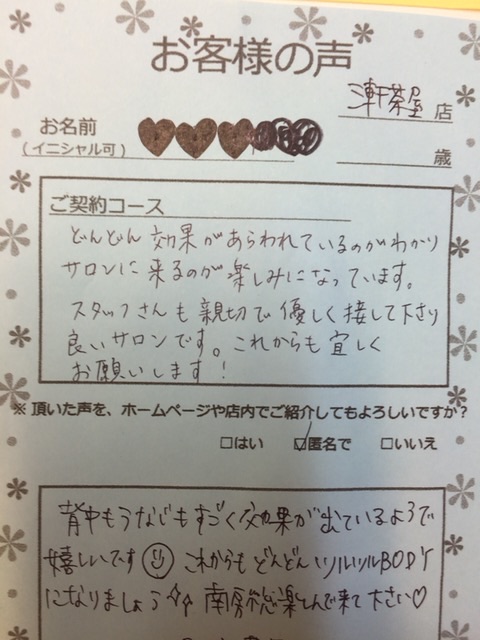 お客様の声
三軒茶屋 店
お名前
(イニシャル可)
歳
ご契約コース
どんどん 効果があらわれているのがわかり
サロンに 来るのが 楽しみになっています。
スタッフさんも 親切で 優しく 接して下さり
良いサロンです。これからも 宜しく
お願いします!
※ 頂いた声を、ホームページや店内でご紹介してもよろしいですか?
□はい ☑匿名で □いいえ
背中もうなじもすごく効果が出ているようで
嬉しいです これからも どんどんツルツルBODY
になりましょう 南房総楽しんで来て 下さい♡